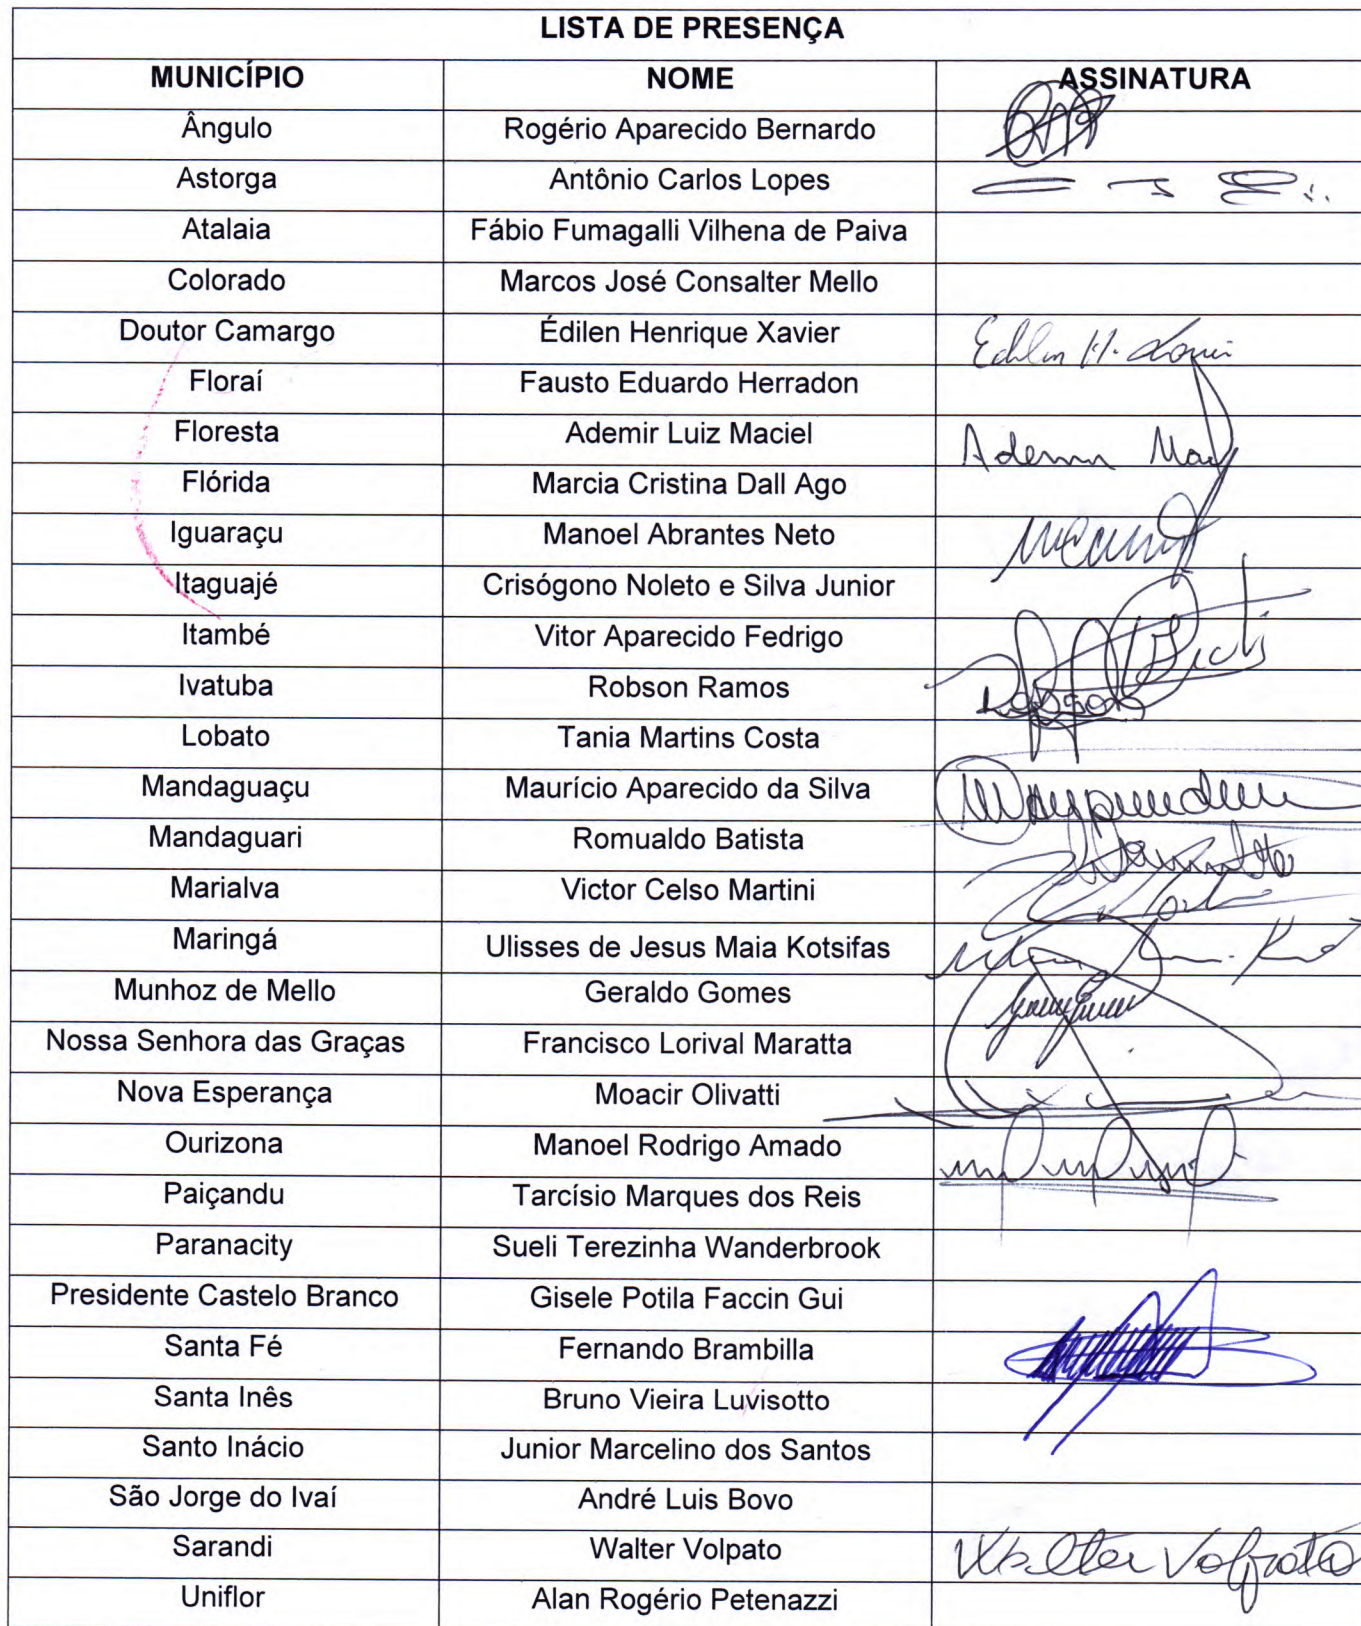 LISTA DE PRESENÇA
MUNICÍPIO NOME ASSINATURA
Ângulo Rogério Aparecido Bernardo
Astorga Antônio Carlos Lopes
Atalaia Fábio Fumagalli Vilhena de Paiva
Colorado Marcos José Consalter Mello
Doutor Camargo Édilen Henrique Xavier
Floraí Fausto Eduardo Herradon
Floresta Ademir Luiz Maciel
Flórida Marcia Cristina Dall Ago
Iguaraçu Manoel Abrantes Neto
Itaguajé Crisógono Noleto e Silva Junior
Itambé Vitor Aparecido Fedrigo
Ivatuba Robson Ramos Robson
Lobato Tania Martins Costa
Mandaguaçu Maurício Aparecido da Silva
Mandaguari Romualdo Batista
Marialva Victor Celso Martini
Maringá Ulisses de Jesus Maia Kotsifas
Munhoz de Mello Geraldo Gomes
Nossa Senhora das Graças Francisco Lorival Maratta
Nova Esperança Moacir Olivatti
Ourizona Manoel Rodrigo Amado
Paiçandu Tarcísio Marques dos Reis
Paranacity Sueli Terezinha Wanderbrook
Presidente Castelo Branco Gisele Potila Faccin Gui
Santa Fé Fernando Brambilla
Santa Inês Bruno Vieira Luvisotto
Santo Inácio Junior Marcelino dos Santos
São Jorge do Ivaí André Luis Bovo
Sarandi Walter Volpato Walter Volpato
Uniflor Alan Rogério Petenazzi